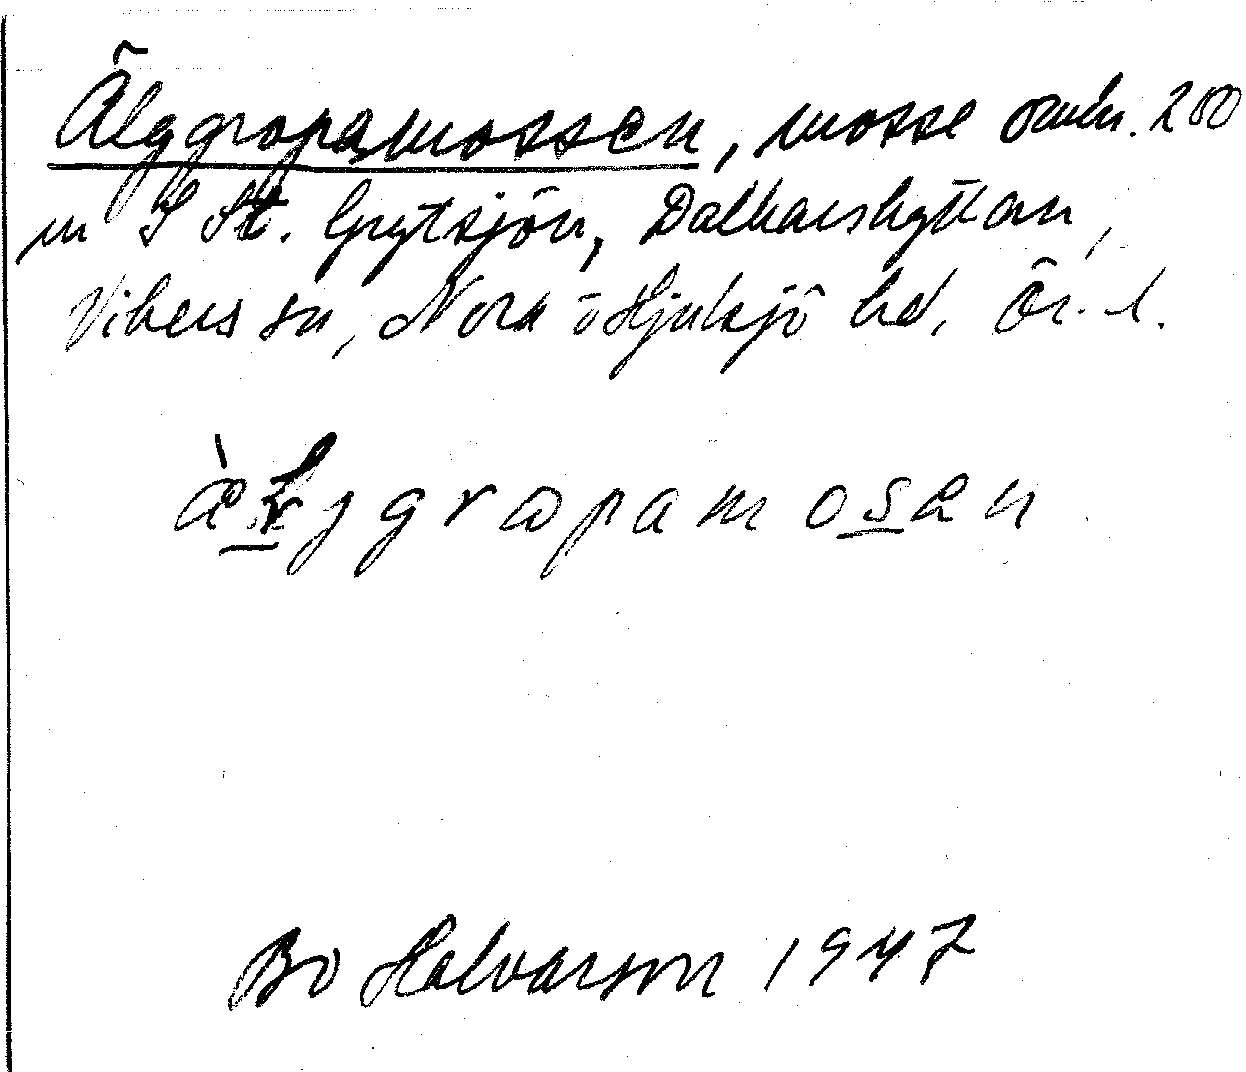 Älggropamossen, mosse omkr. 200
m S St. Grytsjön, Dalkarshyttan,
Vikers sn, Nora o Hjulsjö hd, Ör. l.
æ̀ļggropamosen
Bo Halvarson 1947